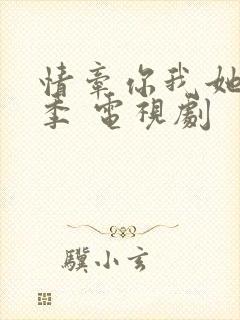 情章你我她
季 電視劇
驥小玄